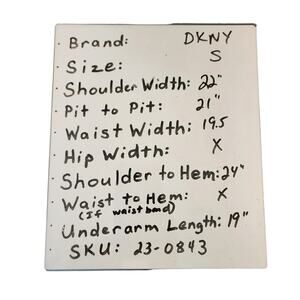 · Brand: DKNY
· Size: S
· Shoulder Width: 22"
· Pit to Pit: 21"
· Waist Width: 19.5
· Hip Width: X
· Shoulder to Hem: 24"
· Waist to Hem: X
(If waist band)
· Underarm Length: 19"
· SKU: 23-0843